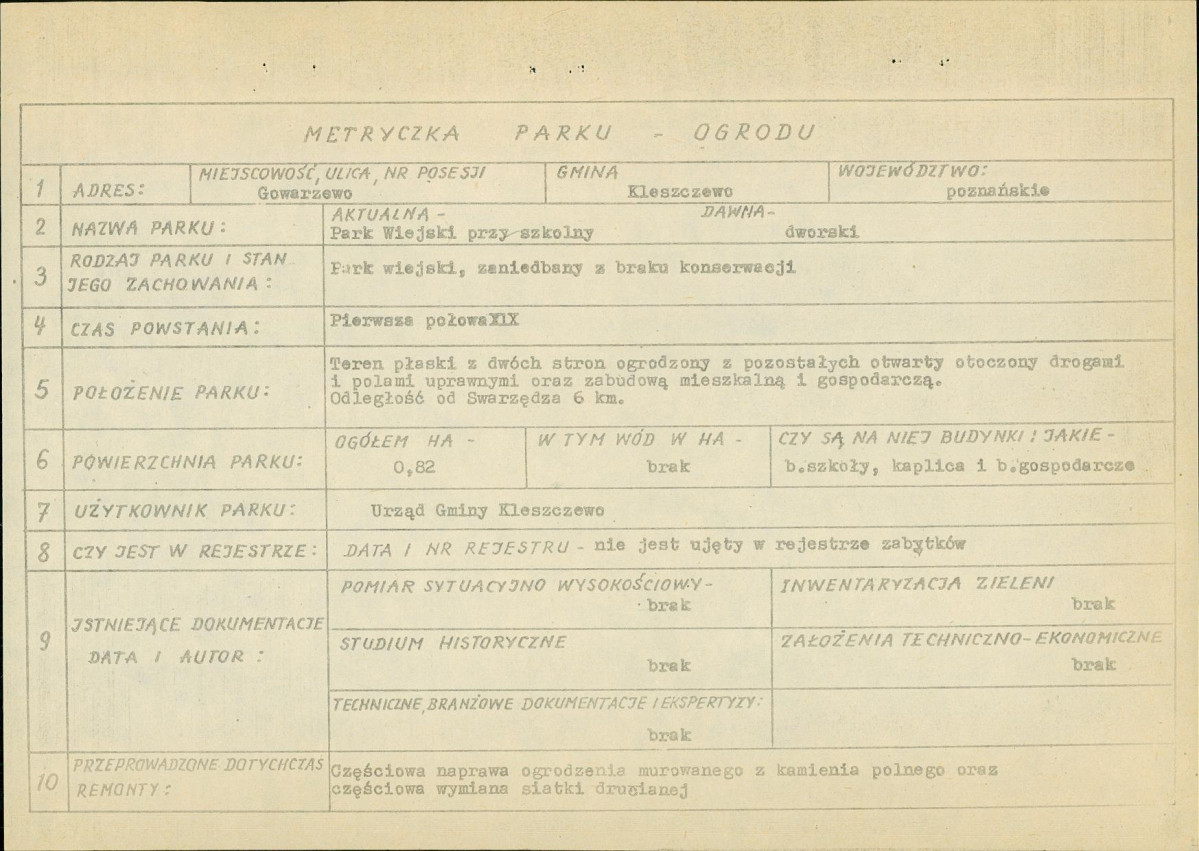 METRYCZKA PARKU - OGRODU
1 ADRES: MIEJSCOWOŚĆ, ULICA, NR POSESJI GMINA WOJEWÓDZTWO:
Gowarzewo Kleszczewo poznańskie
2 NAZWA PARKU: AKTUALNA - DAWNA -
Park Wiejski przy szkolny dworski
3 RODZAJ PARKU I STAN
JEGO ZACHOWANIA: Park wiejski, zaniedbany z braku konserwacji
4 CZAS POWSTANIA: Pierwsza połowa XIX
5 POŁOŻENIE PARKU: Teren płaski z dwóch stron ogrodzony z pozostałych otwarty otoczony drogami
i polami uprawnymi oraz zabudową mieszkalną i gospodarczą.
Odległość od Swarzędza 6 km.
6 POWIERZCHNIA PARKU: OGÓŁEM HA - W TYM WÓD W HA - CZY SĄ NA NIEJ BUDYNKI i JAKIE -
0,82 brak b.szkoły, kaplica i b.gospodarcze
7 UŻYTKOWNIK PARKU: Urząd Gminy Kleszczewo
8 CZY JEST W REJESTRZE: DATA I NR REJESTRU - nie jest ujęty w rejestrze zabytków
9 ISTNIEJĄCE DOKUMENTACJE
DATA I AUTOR:
POMIAR SYTUACYJNO WYSOKOŚCIOWY - INWENTARYZACJA ZIELENI
brak brak
STUDIUM HISTORYCZNE ZAŁOŻENIA TECHNICZNO-EKONOMICZNE
brak brak
TECHNICZNE, BRANŻOWE DOKUMENTACJE I EKSPERTYZY:
brak
10 PRZEPROWADZONE DOTYCHCZAS
REMONTY:
Częściowa naprawa ogrodzenia murowanego z kamienia polnego oraz
częściowa wymiana siatki drucianej